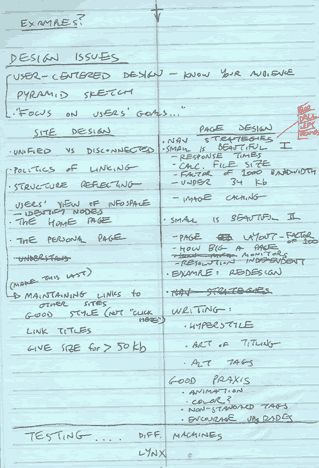 EXAMPLES?
DESIGN ISSUES
USER-CENTERED DESIGN - KNOW YOUR AUDIENCE
PYRAMID SKETCH
"FOCUS ON USERS' GOALS..."
SITE DESIGN
· UNIFIED VS DISCONNECTED
· POLITICS OF LINKING
· STRUCTURE REFLECTING
USERS' VIEW OF INFOSPACE
- IDENTIFY NODES
· THE HOME PAGE
· THE PERSONAL PAGE
(MAKE THIS LAST)
MAINTAINING LINKS TO
OTHER SITES
GOOD STYLE (NOT "CLICK
HERE")
LINK TITLES
GIVE SIZE FOR > 50 Kb
PAGE DESIGN
· NAV STRATEGIES
· SMALL IS BEAUTIFUL I
- RESPONSE TIMES
- CALC. FILE SIZE
- FACTOR OF 1000 BANDWIDTH
- UNDER 34 Kb
- IMAGE CACHING
· SMALL IS BEAUTIFUL II
- PAGE LAYOUT - FACTOR
OF 100
- HOW BIG A PAGE
MONITORS
- RESOLUTION INDEPENDENT
· EXAMPLE: REDESIGN
· NAV STRATEGIES
WRITING:
· HYPERSTYLE
· ART OF TITLING
· ALT TAGS
GOOD PRAXIS
· ANIMATION
· COLOR?
· NON-STANDARD TAGS
· ENCOURAGE UPGRADES
TESTING .... DIFF. MACHINES
LYNX